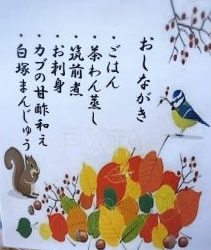 おしながき
・ごはん
・茶わん蒸し
・筑前煮
・お刺身
・カブの甘酢和え
・白塚まんじゅう